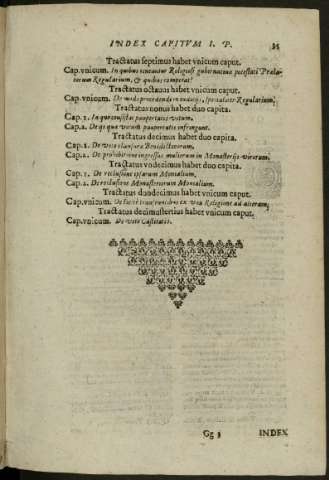 INDEX CAPITVM I. P.
Tractatus septimus habet vnicum caput.
Cap.vnicum. In quibus teneantur Religiosi gubernatiuæ potestati Præla-
torum Regularium, & quibus competat?
Tractatus octauus habet vnicum caput.
Cap.vnicum. De modo procedendi in
Regularium.
Tractatus nonus habet duo capita.
Cap.1. In quo consistat paupertatis votum.
Cap.2. De ijs quæ votum paupertatis infringunt.
Tractatus decimus habet duo capita.
Cap.1. De voto clausuræ Benedictinorum.
Cap.2. De prohibitione ingressus mulierum in Monasterijs virorum.
Tractatus vndecimus habet duo capita.
Cap.1. De reclusione ipsarum Monialium.
Cap.2. De reclusione Monasteriorum Monialium.
Tractatus duodecimus habet vnicum caput.
Cap.vnicum. De licitè transeuntibus ex vna Religione ad alteram.
Tractatus decimustertius habet vnicum caput.
Cap.vnicum. De voto Castitatis.
INDEX